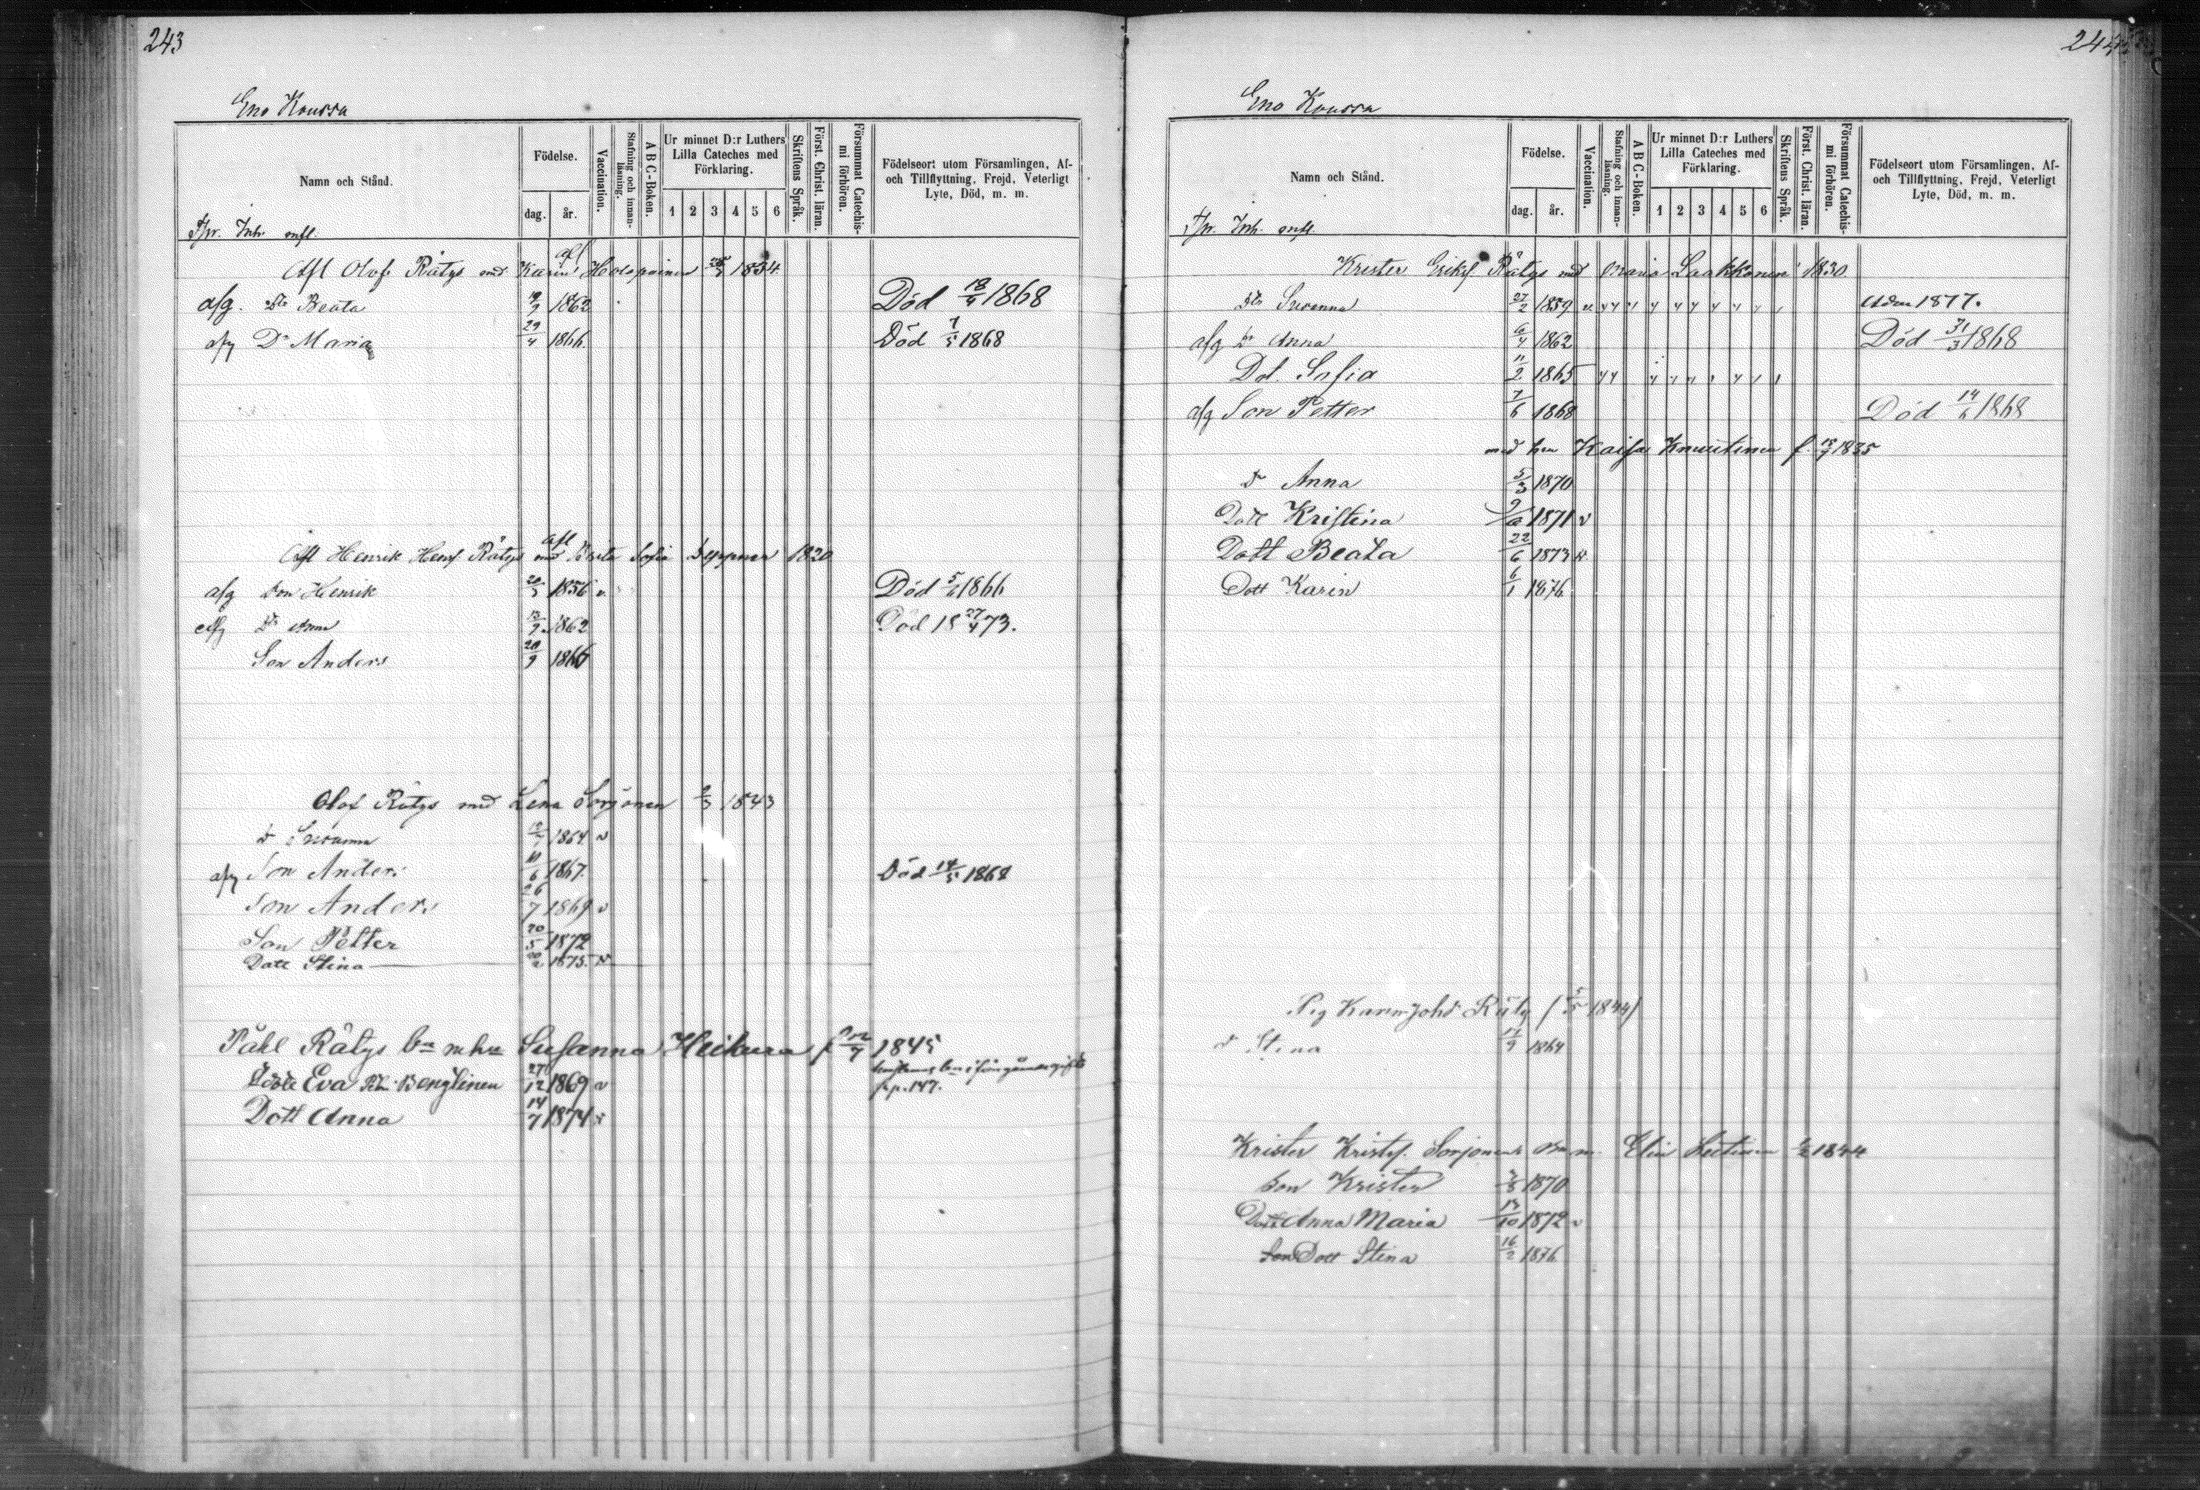 243
Eno Koussa
Namn och Stånd.
Födelse.
dag. år.
Vaccination.
Stafning och innanläsning.
A B C-Boken.
Ur minnet D:r Luthers Lilla Cateches med Förklaring.
1 2 3 4 5 6
Skriftens Språk.
Först. Christ. läran.
Försummat Catechismi förhören.
Födelseort utom Församlingen, Af- och Tillflyttning, Frejd, Veterligt Lyte, Död, m. m.
Afl Olof Rätys md Karin Holopainen 1834
afg. Dtr Beata 1862 Död 18/4 1868
afg Dr Maria 29/4 1866 Död 7/5 1868
Afl Henrik Henr Rätys md Brita Sofia 1820
afg Son Henrik 20/3 1856 v Död 5/6 1866
afg Dtr Anna 13/9 1862 Död 18 27/4 73.
Son Anders 20/9 1866
Olof Rätys md Lena Sorjonen 2/3 1843
dr Susanna 1864 v
afg Son Anders 11/6 1867 Död 14/5 1868
Son Anders 26/7 1869 v
Son Petter 20/5 1872
Dott Stina 1875 v
Påhl Rätys m hu Susanna Heikura f 1845
Eva Bengtinen 27/12 1869 v
p. 147.
Dott Anna 14/7 1874 v
244
Eno Koussa
Namn och Stånd.
Födelse.
dag. år.
Vaccination.
Stafning och innanläsning.
A B C-Boken.
Ur minnet D:r Luthers Lilla Cateches med Förklaring.
1 2 3 4 5 6
Skriftens Språk.
Först. Christ. läran.
Försummat Catechismi förhören.
Födelseort utom Församlingen, Af- och Tillflyttning, Frejd, Veterligt Lyte, Död, m. m.
Krister Eriksf. Rätys md Maria Laakkonen 1830
Dtr Susanna 27/2 1859 1877.
afg Dr Anna 6/4 1862 Död 31/3 1868
Dot. Sofia 11/2 1865
afg Son Petter 7/6 1868 Död 14/6 1868
med hu Kaisa Knuutinen f. 1835
dr Anna 5/3 1870
Dott Kristina 9/10 1871 v
Dott Beata 22/6 1873
Dott Karin 6/1 1876
Pig Karin Johd Räty (5/5 1844)
d Stina 1864
Krister Kristf. Sorjonens Elin 1844
Son Krister 1870
Dott Anna Maria 13/10 1872 v
Son Dott Stina 16/2 1876